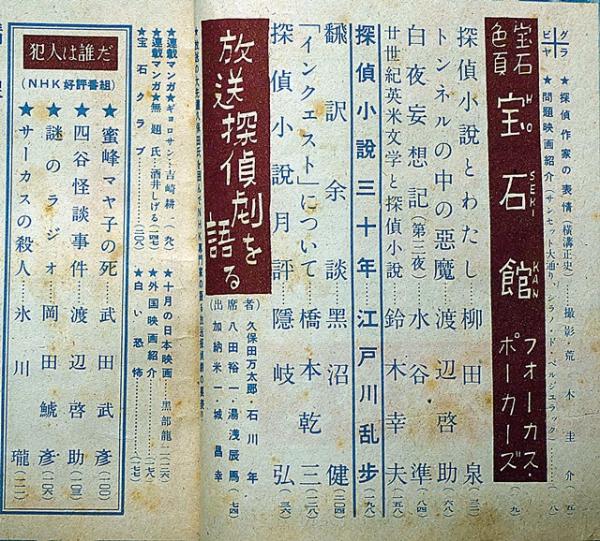 グラビヤ
★探偵作家の表情(横溝正史)……撮影・荒木圭介(五)
★問題映画紹介(サンセット大通り、シラノ・ド・ベルジュラック)
宝石色頁
宝石館
HO SEKI KAN
フォーカス・ポーカーズ(九)
探偵小説とわたし……柳田泉(三二)
トンネルの中の悪魔……渡辺啓助(六八)
白夜妄想記(第三夜)……水谷準(八四)
廿世紀英米文学と探偵小説……鈴木幸夫(一五八)
探偵小説三十年 江戸川乱歩(一九八)
飜訳余談……黒沼健(二〇四)
「インクエスト」について……橋本乾三(二三八)
探偵小説月評……隠岐弘(三六)
放送探偵劇を語る
出席者
久保田万太郎・石川年
八田裕一・湯浅辰馬
加納米一・城昌幸
(七四)
★連載マンガ★ギョロサン・吉崎耕一(九)
★連載マンガ★無題氏・酒井しげる(一四七)
★宝石クラブ……(三〇八)
★十月の日本映画……黒部龍二(二六)
★外国映画紹介……(一七六)
★白い恐怖……(一七七)
犯人は誰だ
(NHK好評番組)
★蜜峰マヤ子の死……武田武彦(一〇〇)
★四谷怪談事件……渡辺啓助(一〇三)
★謎のラジオ……岡田鯱彦(一〇六)
★サーカスの殺人……氷川瓏(一一一)